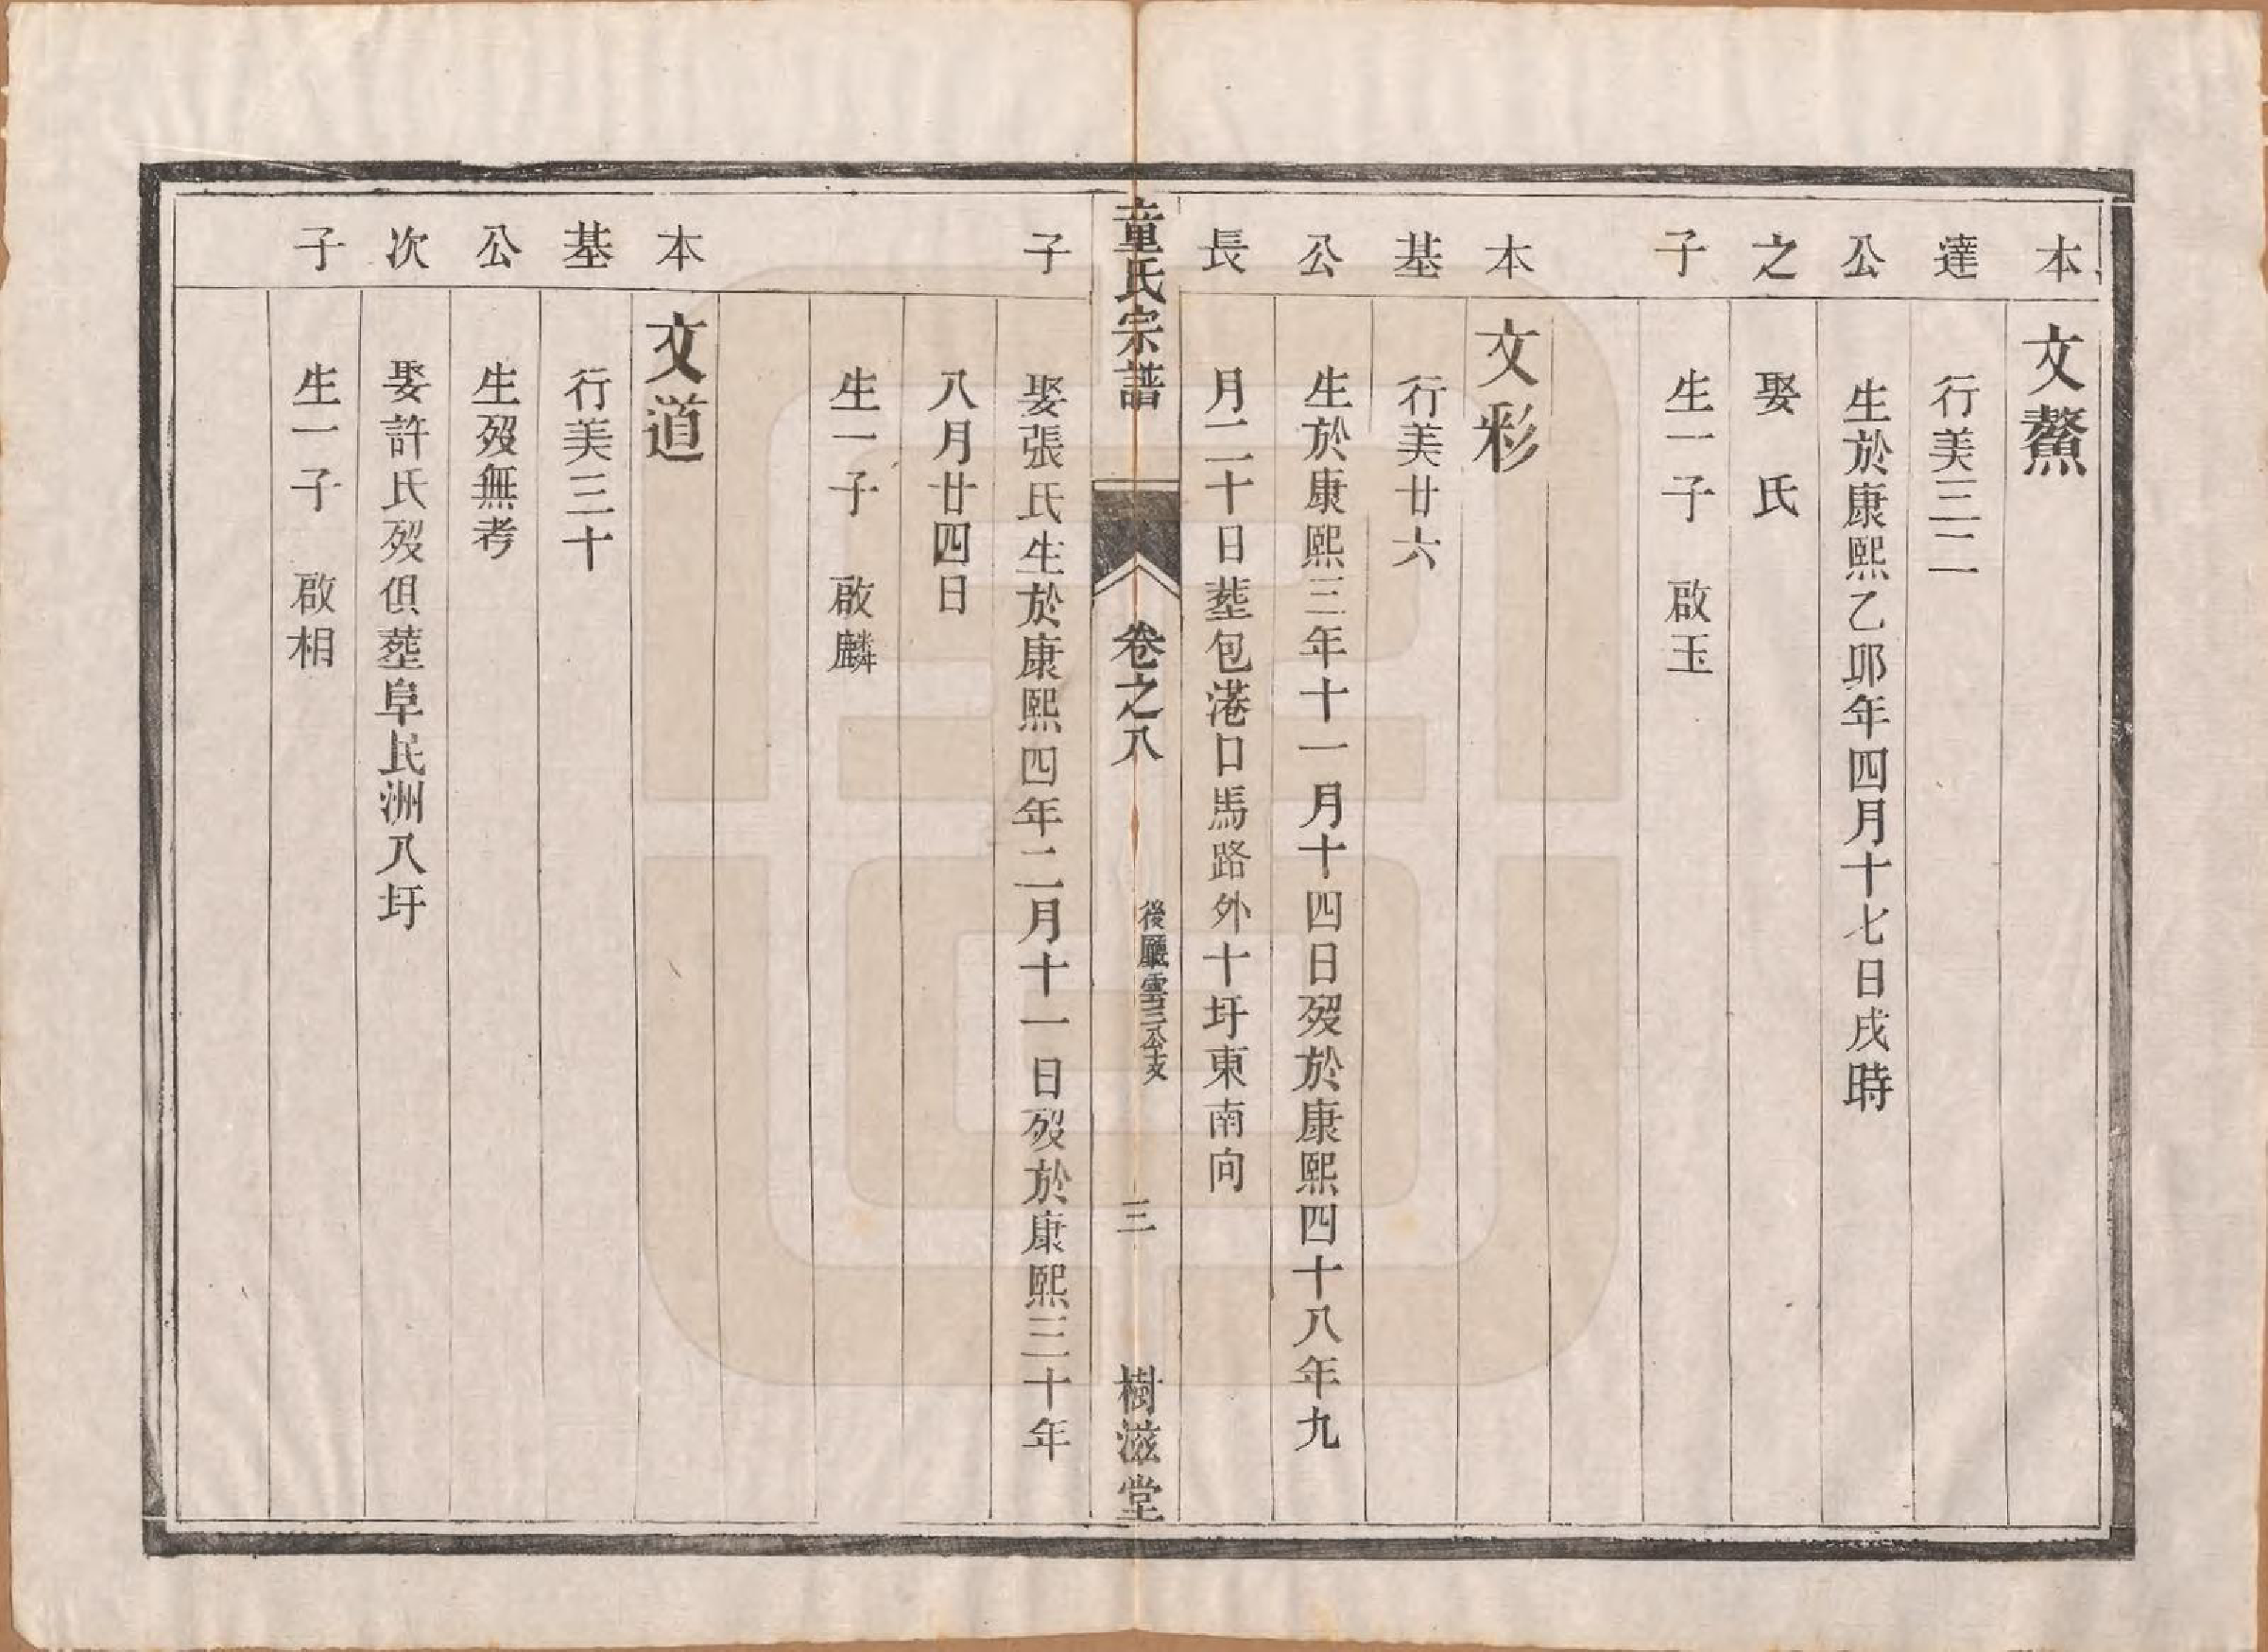 本 文鰲
達 行美三二
公 生於康熙乙卯年四月十七日戌時
之 娶 氏
子 生一子 啟玉
本 文彩
基 行美廿六
公 生於康熙三年十一月十四日歿於康熙四十八年九
長 月二十日塟包港口馬路外十圩東南向
童氏宗譜 卷之八 後廳雲三公支 三 樹滋堂
子 娶張氏生於康熙四年二月十一日歿於康熙三十年
八月廿四日
生一子 啟麟
本 文道
基 行美三十
公 生歿無考
次 娶許氏歿俱塟阜民洲八圩
子 生一子 啟相